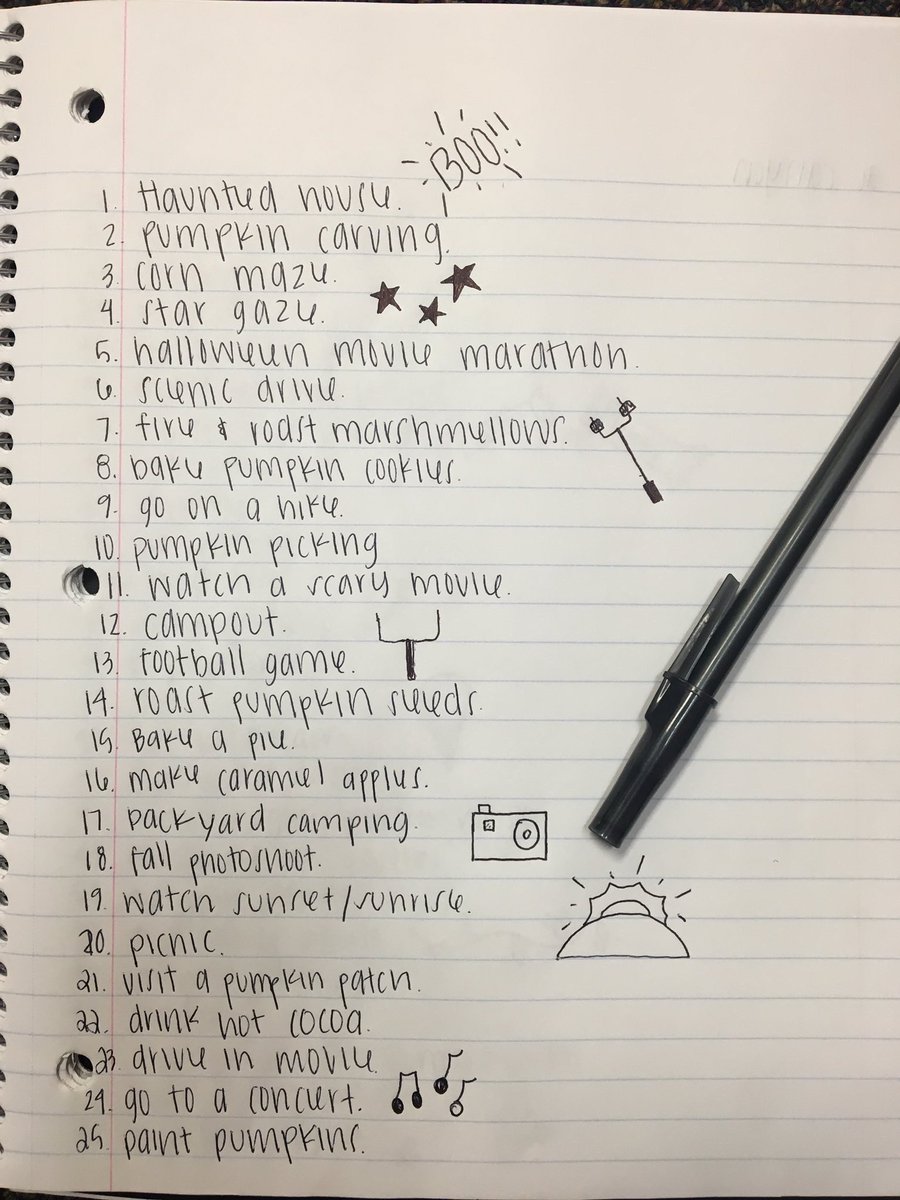 BOO!!
1. Haunted house.
2. pumpkin carving.
3. corn maze.
4. star gaze.
5. halloween movie marathon.
6. scenic drive.
7. fire & roast marshmellows.
8. bake pumpkin cookies.
9. go on a hike.
10. pumpkin picking
11. watch a scary movie.
12. campout.
13. football game.
14. roast pumpkin seeds.
15. Bake a pie.
16. make caramel apples.
17. backyard camping.
18. fall photoshoot.
19. watch sunset/sunrise.
20. picnic.
21. visit a pumpkin patch.
22. drink hot cocoa.
23. drive in movie.
24. go to a concert.
25. paint pumpkins.